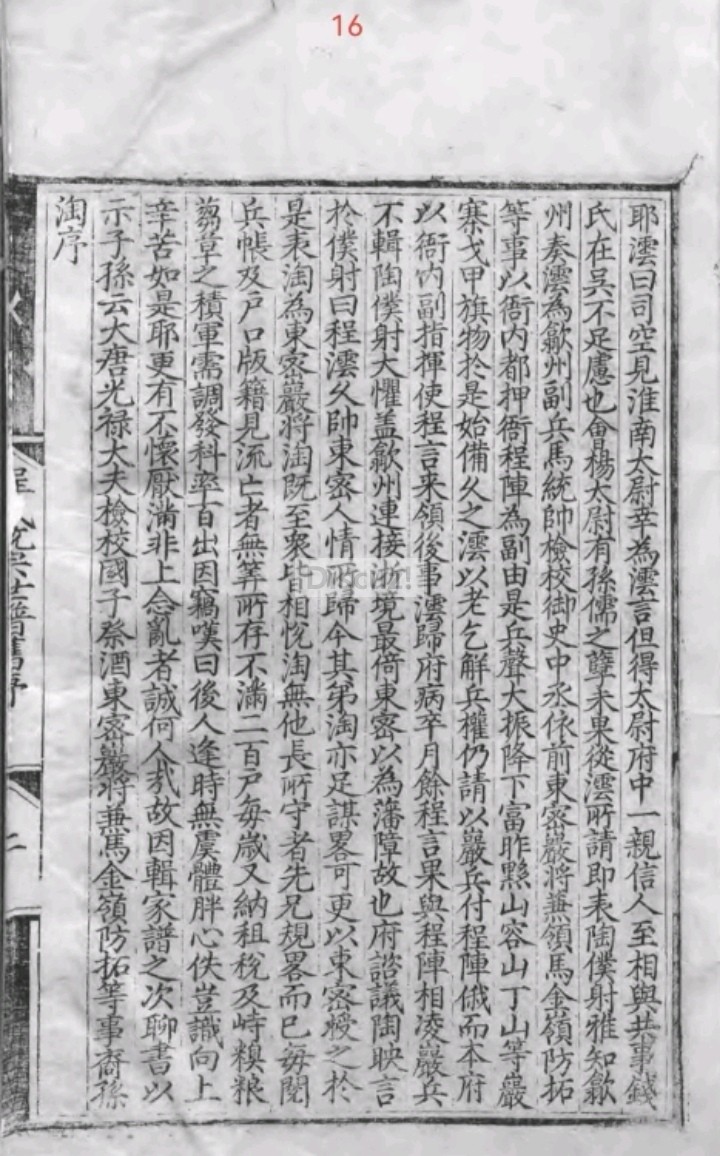 16
耶澐曰司空見淮南太尉幸為澐言但得太尉府中一親信人至相與共事錢
氏在吳不足慮也會楊太尉有孫儒之孽未果從澐所請即表陶僕射雅知歙
州奏澐為歙州副兵馬統帥檢校御史中丞依前東密巖將兼領馬金嶺防拓
等事以衙內都押衙程陣為副由是兵聲大振降下富昨黟山容山丁山等巖
寨戈甲旗物於是始備久之澐以老乞解兵權仍請以巖兵付程陣俄而本府
以衙內副指揮使程言来領後事澐歸府病卒月餘程言果與程陣相凌巖兵
不輯陶僕射大懼盖歙州連接浙境最倚東密以為藩障故也府諮議陶映言
於僕射曰程澐久帥東密人情所歸今其第淘亦足謀畧可更以東密授之於
是表淘為東密巖將淘既至衆皆相悅淘無他長所守者先兄規畧而已每閱
兵帳及戶口版籍見流亡者無筭所存不滿二百戶每嵗又納租稅及峙糗粮
蒭草之積軍需調發科率百出因竊嘆曰後人逢時無虞體胖心佚豈識向上
辛苦如是耶更有不懷厭滿非上念亂者誠何人㢤故因輯家譜之次聊書以
示子孫云大唐光禄大夫檢校國子祭酒東密巖將兼馬金嶺防拓等事裔孫
淘序
程氏統宗世譜舊序
二